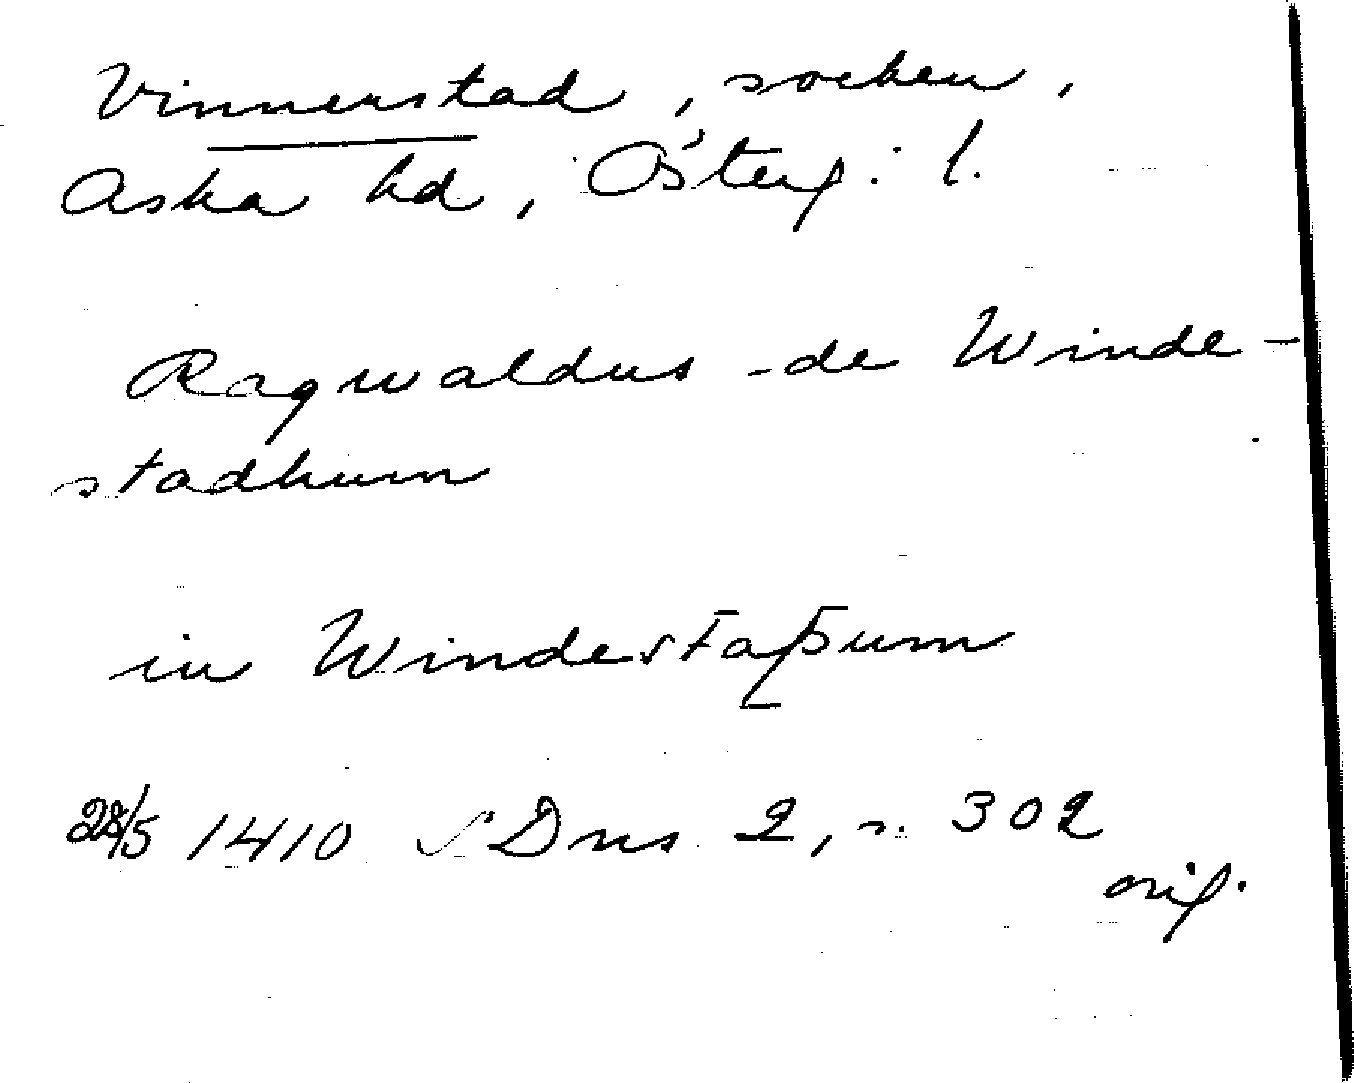 Vinnerstad, socken,
Aska hd, Österg. l.
Ragwaldus de Winde-
stadhum
in Windestaþum
28/5 1410 SDns 2, s. 302
orig.